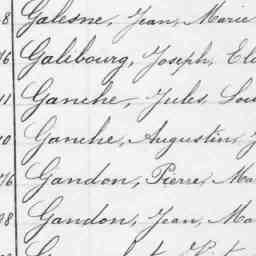 8 Galesne, Jean, Marie
6 Galibourg, Joseph,
11 Ganche, Jules,
0 Ganche, Augustin,
6 Gandon, Pierre,
8 Gandon, Jean,